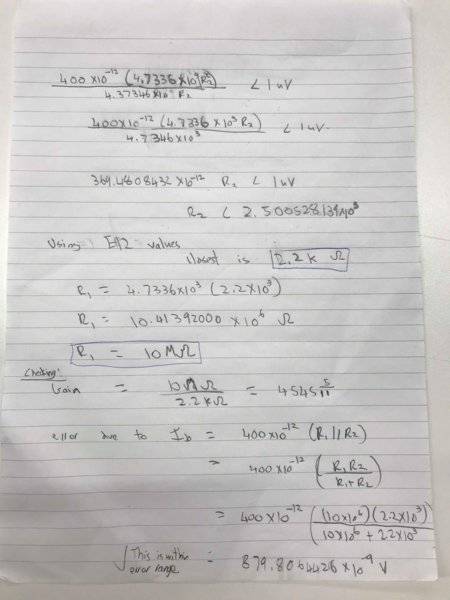 400 x10^-12 (4.7336 x10^3 R2^2) / 4.37346x10^3 R2 < 1uV
400x10^-12 (4.7336 x10^3 R2) / 4.7346x10^3 < 1uV.
369.4808432 x10^-12 R2 < 1uV
R2 < 2.500528139x10^3
Using E12 values
closest is 2.2k Ω
R1 = 4.7336x10^3 (2.2x10^3)
R1 = 10.41392000 x10^6 Ω
R1 = 10MΩ
Checking:
Gain = 10MΩ / 2.2kΩ = 4545 5/11
error due to Ib = 400x10^-12 (R1||R2)
= 400x10^-12 (R1R2 / R1+R2)
= 400x10^-12 ((10x10^6)(2.2x10^3) / (10x10^6 + 2.2x10^3))
√ This is within error range = 879.8064426 x10^-9 V